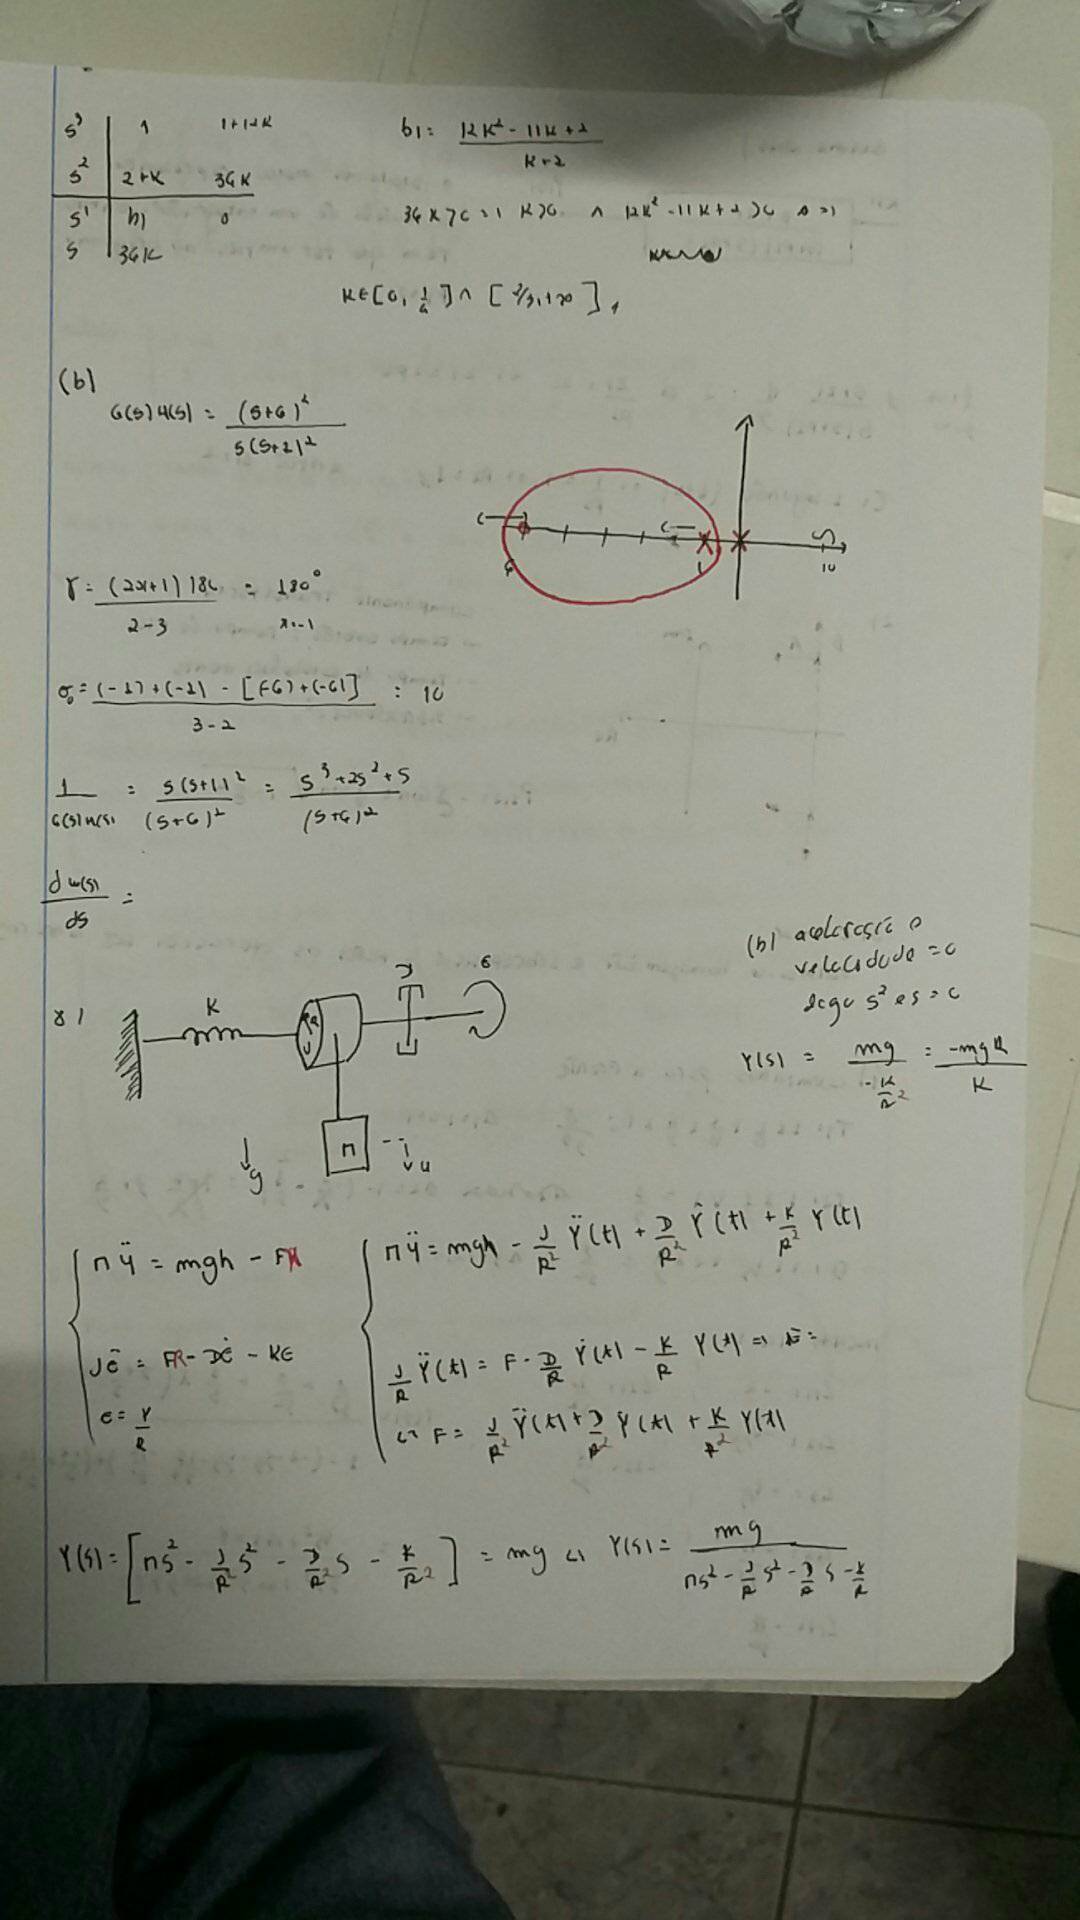 s³ | 1 1+12K
s² | 2+K 36K
s¹ | b1 0
s | 36K
b1 = (12K² - 11K + 2) / (K+2)
36K>0 => K>0 ∧ 12K² - 11K + 2 >0 =>
K∈[0, 1/4] ∧ [2/3, +∞]
(b)
G(s)H(s) = (s+6)² / s(s+1)²
6 1 10
γ = (2n+1)180 / (2-3) = 180°
n=-1
σ₀ = (-1)+(-1) - [(-6)+(-6)] / (3-2) = 10
1 / G(s)H(s) = s(s+1)² / (s+6)² = (s³+2s²+s) / (s+6)²
dw(s)/ds =
8)
K R D θ
M y
g
(b) aceleração e
velocidade = 0
logo s² e s = 0
Y(s) = mg / (-K/R²) = -mgR / K
MŸ = mgh - F
Jθ̈ = FR - Dθ̇ - Kθ
θ = Y/R
MŸ = mgh - J/R² Ÿ(t) + D/R² Ẏ(t) + K/R² Y(t)
J/R Ÿ(t) = F - D/R Ẏ(t) - K/R Y(t) =>
<=> F = J/R² Ÿ(t) + D/R² Ẏ(t) + K/R² Y(t)
Y(s) = [Ms² - J/R² s² - D/R² s - K/R²] = mg <=> Y(s) = mg / (Ms² - J/R s² - D/R s - K/R)